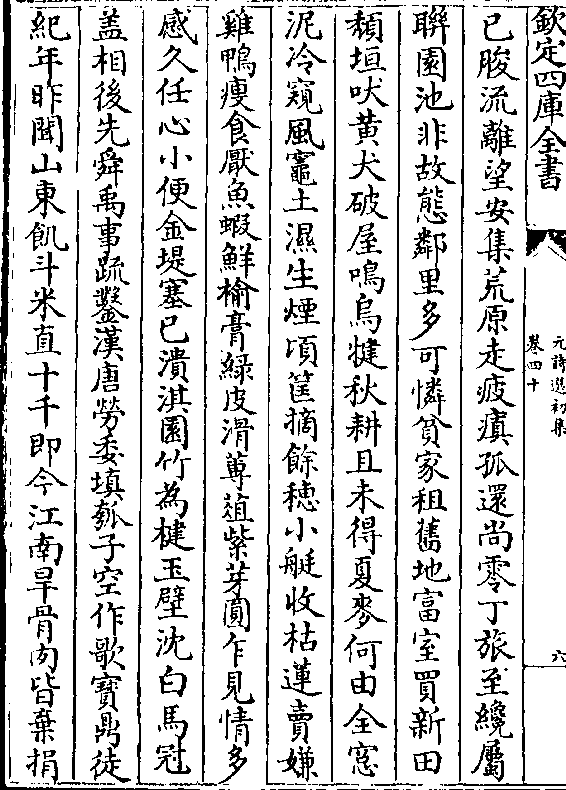 欽定四庫全書
元詩選初集
卷四十
六
已朘流離望安集荒原走疲瘨孤還尚零丁旅至纔屬
聯園池非故態鄰里多可憐貧家租舊地富室買新田
頹垣吠黄犬破屋鳴烏犍秋耕且未得夏麥何由全窓
泥冷窺風竈土濕生煙頃筐摘餘穂小艇收枯蓮賣嫌
雞鴨瘦食厭魚蝦鮮榆膏綠皮滑蓴葅紫芽圓乍見情多
感久任心小便金堤塞已潰淇園竹為楗玉璧沈白馬冠
盖相後先舜禹事疏鑿漢唐勞委填瓠子空作歌寶鼎徒
紀年昨聞山東飢斗米直十千即今江南旱骨肉皆棄捐